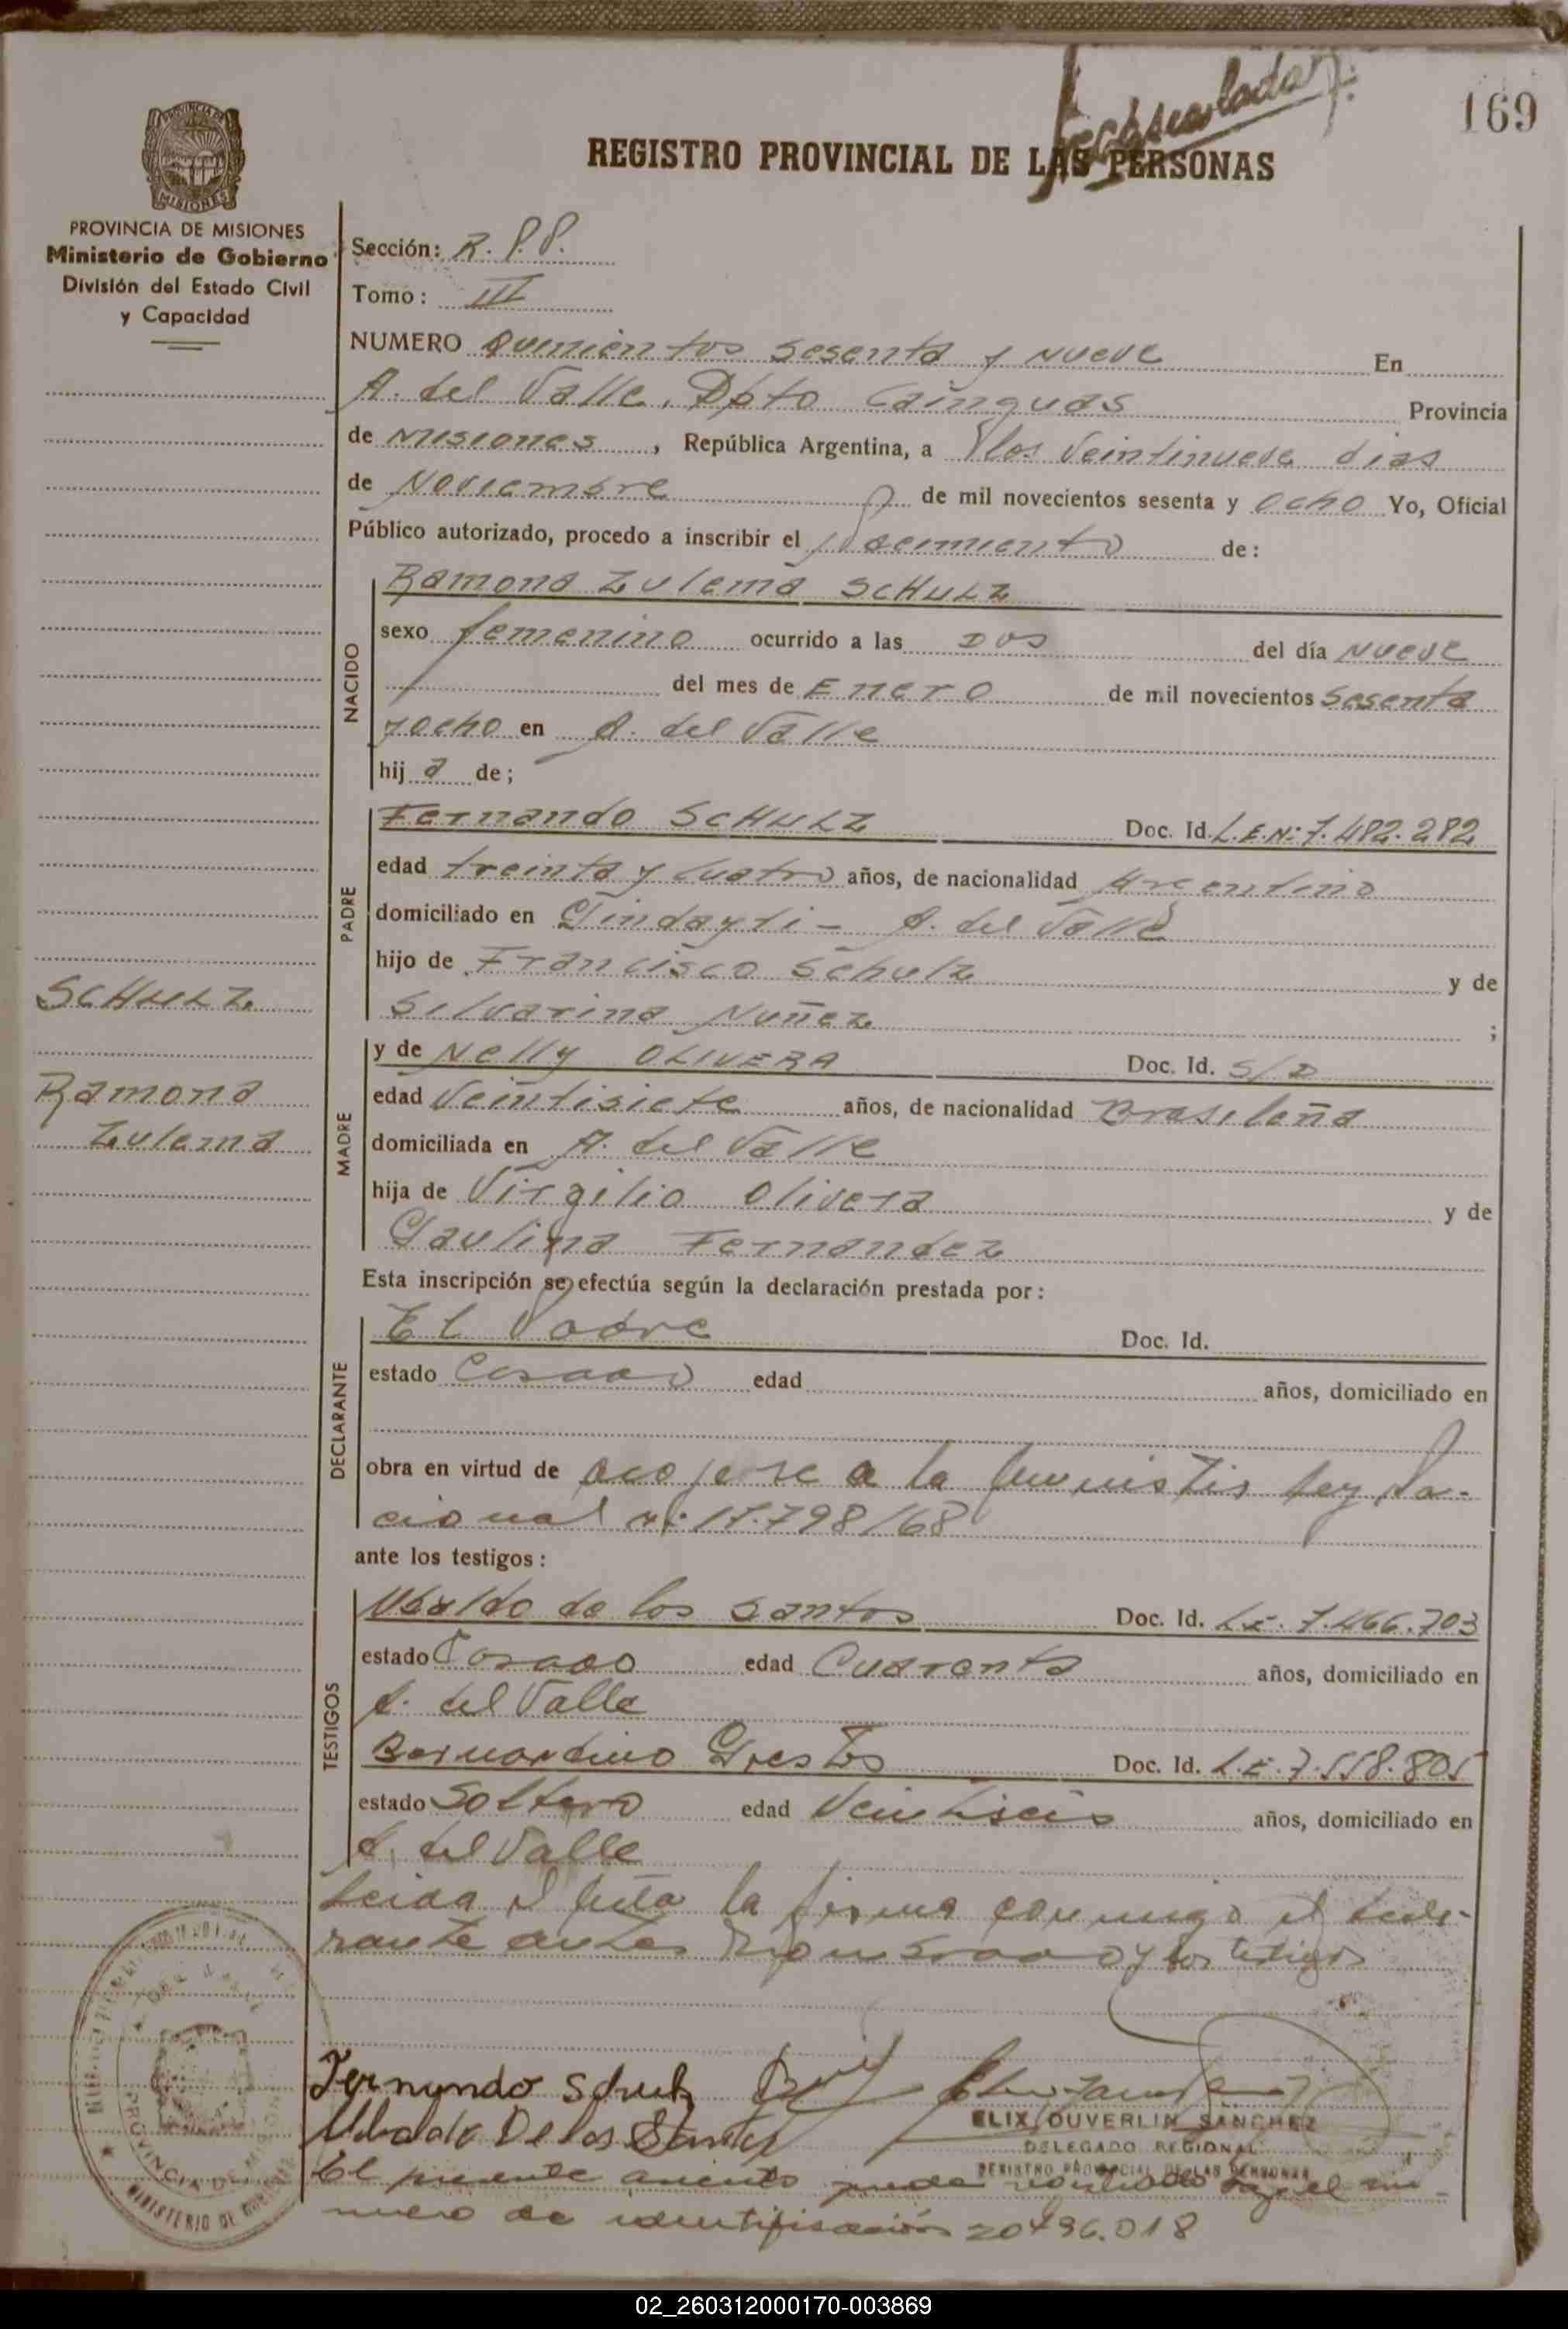 169
REGISTRO PROVINCIAL DE LAS PERSONAS
MISIONES
PROVINCIA DE MISIONES
Ministerio de Gobierno
División del Estado Civil
y Capacidad
Sección: R. P. P.
Tomo: III
NUMERO Quinientos sesenta y nueve En
A. del Valle, Dpto Cainguas Provincia
de Misiones, República Argentina, a los Veintinueve dias
de Noviembre de mil novecientos sesenta y ocho Yo, Oficial
Público autorizado, procedo a inscribir el nacimiento de:
NACIDO
Ramona Zulema SCHULZ
sexo femenino ocurrido a las Dos del día Nueve
del mes de Enero de mil novecientos Sesenta
y ocho en A. del Valle
hij a de;
PADRE
Fernando SCHULZ Doc. Id. L.E.Nº: 7.482.282
edad treinta y cuatro años, de nacionalidad Argentino
domiciliado en Pindayti - A. del Valle
hijo de Francisco Schulz y de
Silvarina Nuñez ;
SCHULZ
Ramona
Zulema
MADRE
y de Nelly OLIVERA Doc. Id. S/D
edad Veintisiete años, de nacionalidad Brasileña
domiciliada en A. del Valle
hija de Virgilio Olivera y de
Paulina Fernandez
Esta inscripción se efectúa según la declaración prestada por:
DECLARANTE
El Padre Doc. Id.
estado Casado edad años, domiciliado en
obra en virtud de acojerse a la Amnistia Ley Na-
cional nº: 17.798/68
ante los testigos:
TESTIGOS
Ubaldo de los Santos Doc. Id. L.E. 7.466.703
estado Casado edad Cuarenta años, domiciliado en
A. del Valle
Bernardino Prestes Doc. Id. L.E. 7.558.805
estado Soltero edad Veintiseis años, domiciliado en
A. del Valle
Leida el Acta la firma conmigo el decla-
rante antes y los testigos
Fernando Schulz
Ubaldo De los Santos
ELIX DUVERLIN SANCHEZ
DELEGADO REGIONAL
REGISTRO PROVINCIAL DE LAS PERSONAS
PROVINCIA DE MISIONES
MINISTERIO DE GOBIERNO
El presente asiento queda bajo el nu-
mero de identificación 20.496.018
02_260312000170-003869